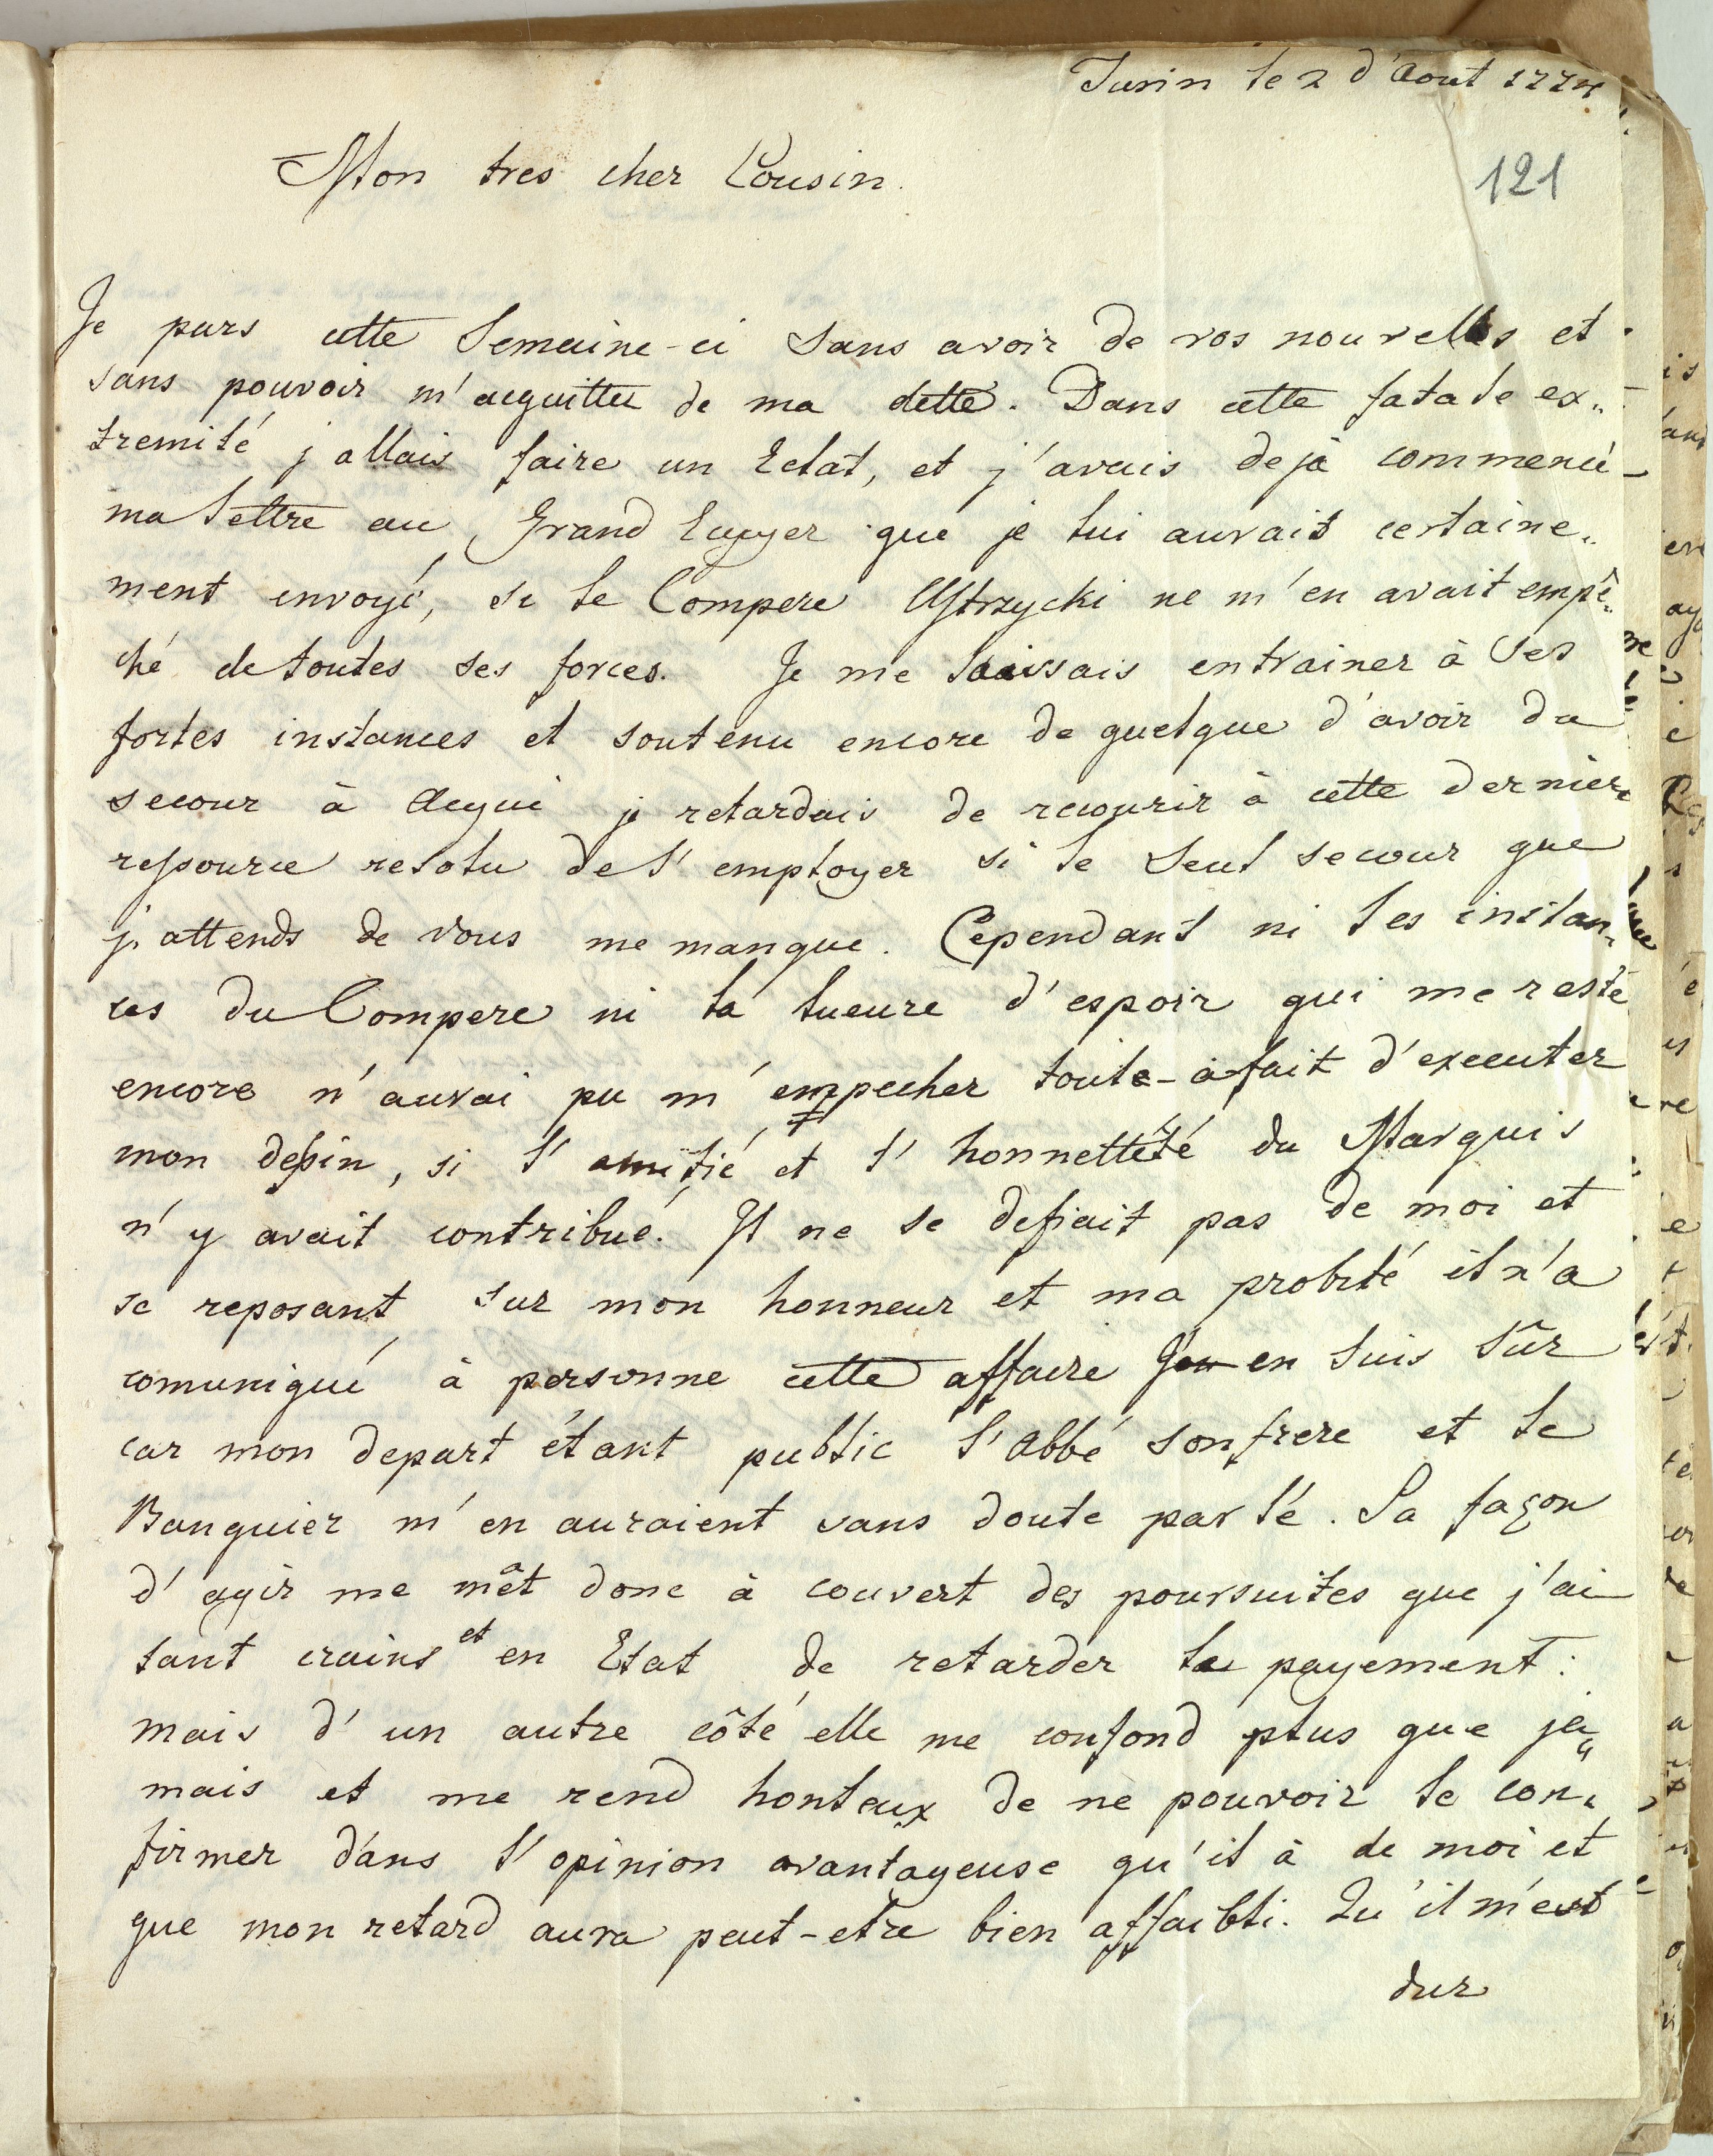 Turin le 2 d'Aout 1774
121
Mon tres cher Cousin.
Je pars cette Semaine-ci sans avoir de vos nouvelles et
sans pouvoir m'acquitter de ma dette. Dans cette fatale ex„
tremité j'allais faire un Eclat, et j'avais dejà commencé
ma lettre au Grand Ecuyer que je lui aurais certaine„
ment envoyé, si le Compere Ustrzycki ne m'en avait empê„
ché de toutes ses forces. Je me laissais entrainer à ses
fortes instances et soutenu encore de quelque d'avoir du
secour à Acqui je retardais de recourir à cette derniere
ressource resolu de l'employer si le seul secour que
j'attends de vous me manque. Cependant ni les instan„
ces du Compere ni la lueure d'espoir qui me reste
encore n'aurai pu m'empecher toute-à-fait d'executer
mon dessin, si l'amitié et l'honnetteté du Marquis
n'y avait contribué. Il ne se defiait pas de moi et
se reposant sur mon honneur et ma probité il n'a
comuniqué à personne cette affaire J'en en suis sûr
car mon depart étant public l'Abbé son frere et le
Banquier m'en auraient sans doute parlé. Sa façon
d'agir me mêt donc à couvert des poursuites que j'ai
tant crains et en Etat de retarder le payement:
mais d'un autre côté elle me confond plus que ja„
mais et me rend honteux de ne pouvoir le con„
firmer dans l'opinion avantageuse qu'il à de moi et
que mon retard aura peut-etre bien affaibli. Qu'il m'est
dur